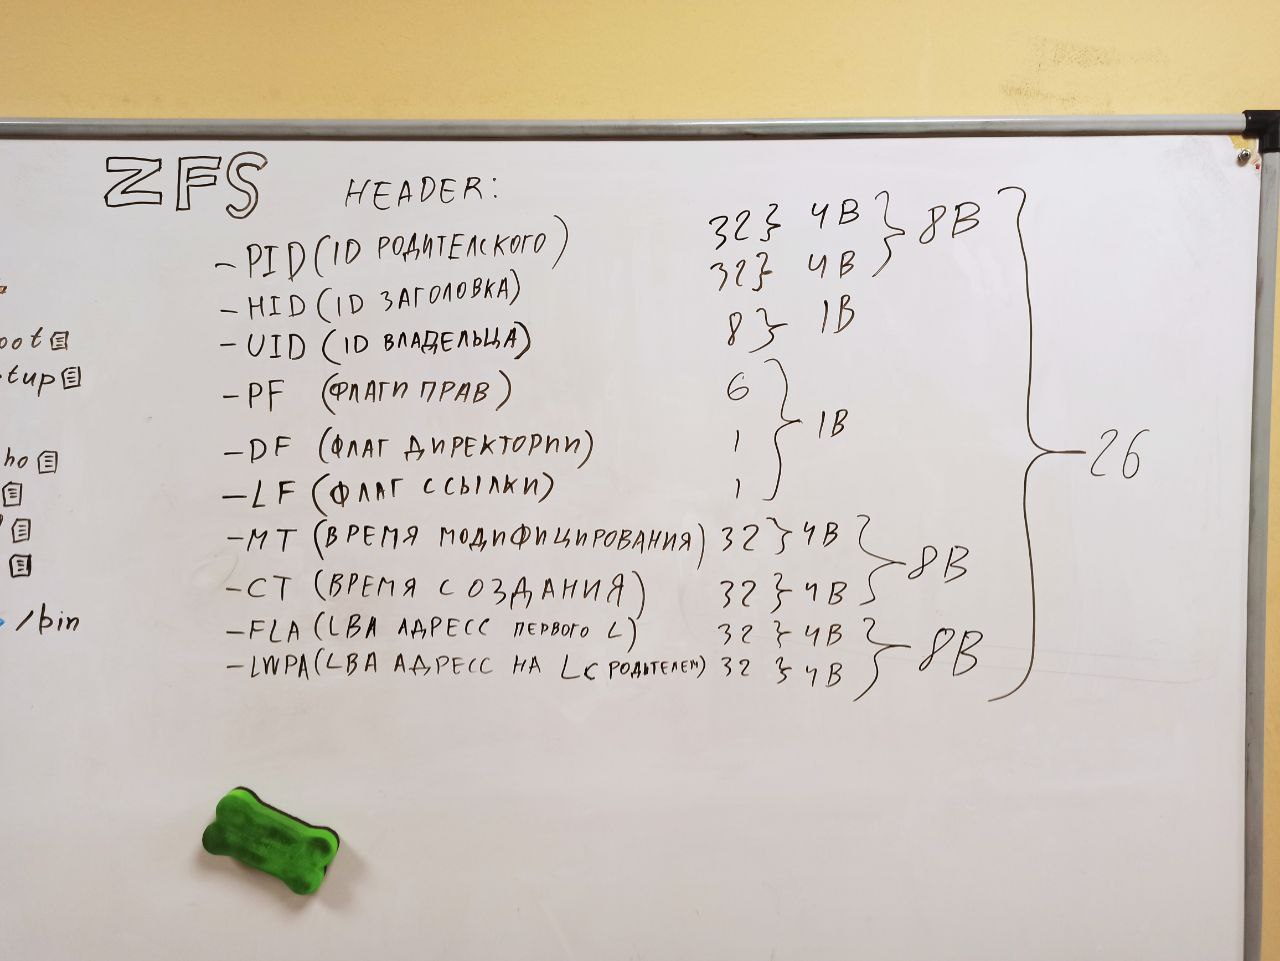 ZFS HEADER:
- PID (ID РОДИТЕЛСКОГО) 32} 4B } 8B
- HID (ID ЗАГОЛОВКА) 32} 4B
- UID (ID ВЛАДЕЛЬЦА) 8} 1B
- PF (ФЛАГИ ПРАВ) 6
- DF (ФЛАГ ДИРЕКТОРИИ) 1 } 1B
- LF (ФЛАГ ССЫЛКИ) 1
- MT (ВРЕМЯ МОДИФИЦИРОВАНИЯ) 32} 4B } 8B
- CT (ВРЕМЯ СОЗДАНИЯ) 32} 4B
- FLA (LBA АДРЕСС ПЕРВОГО L) 32} 4B } 8B
- LWPA (LBA АДРЕСС НА L С РОДИТЕЛЕМ) 32} 4B
} 26
oot
tup
ho
/bin